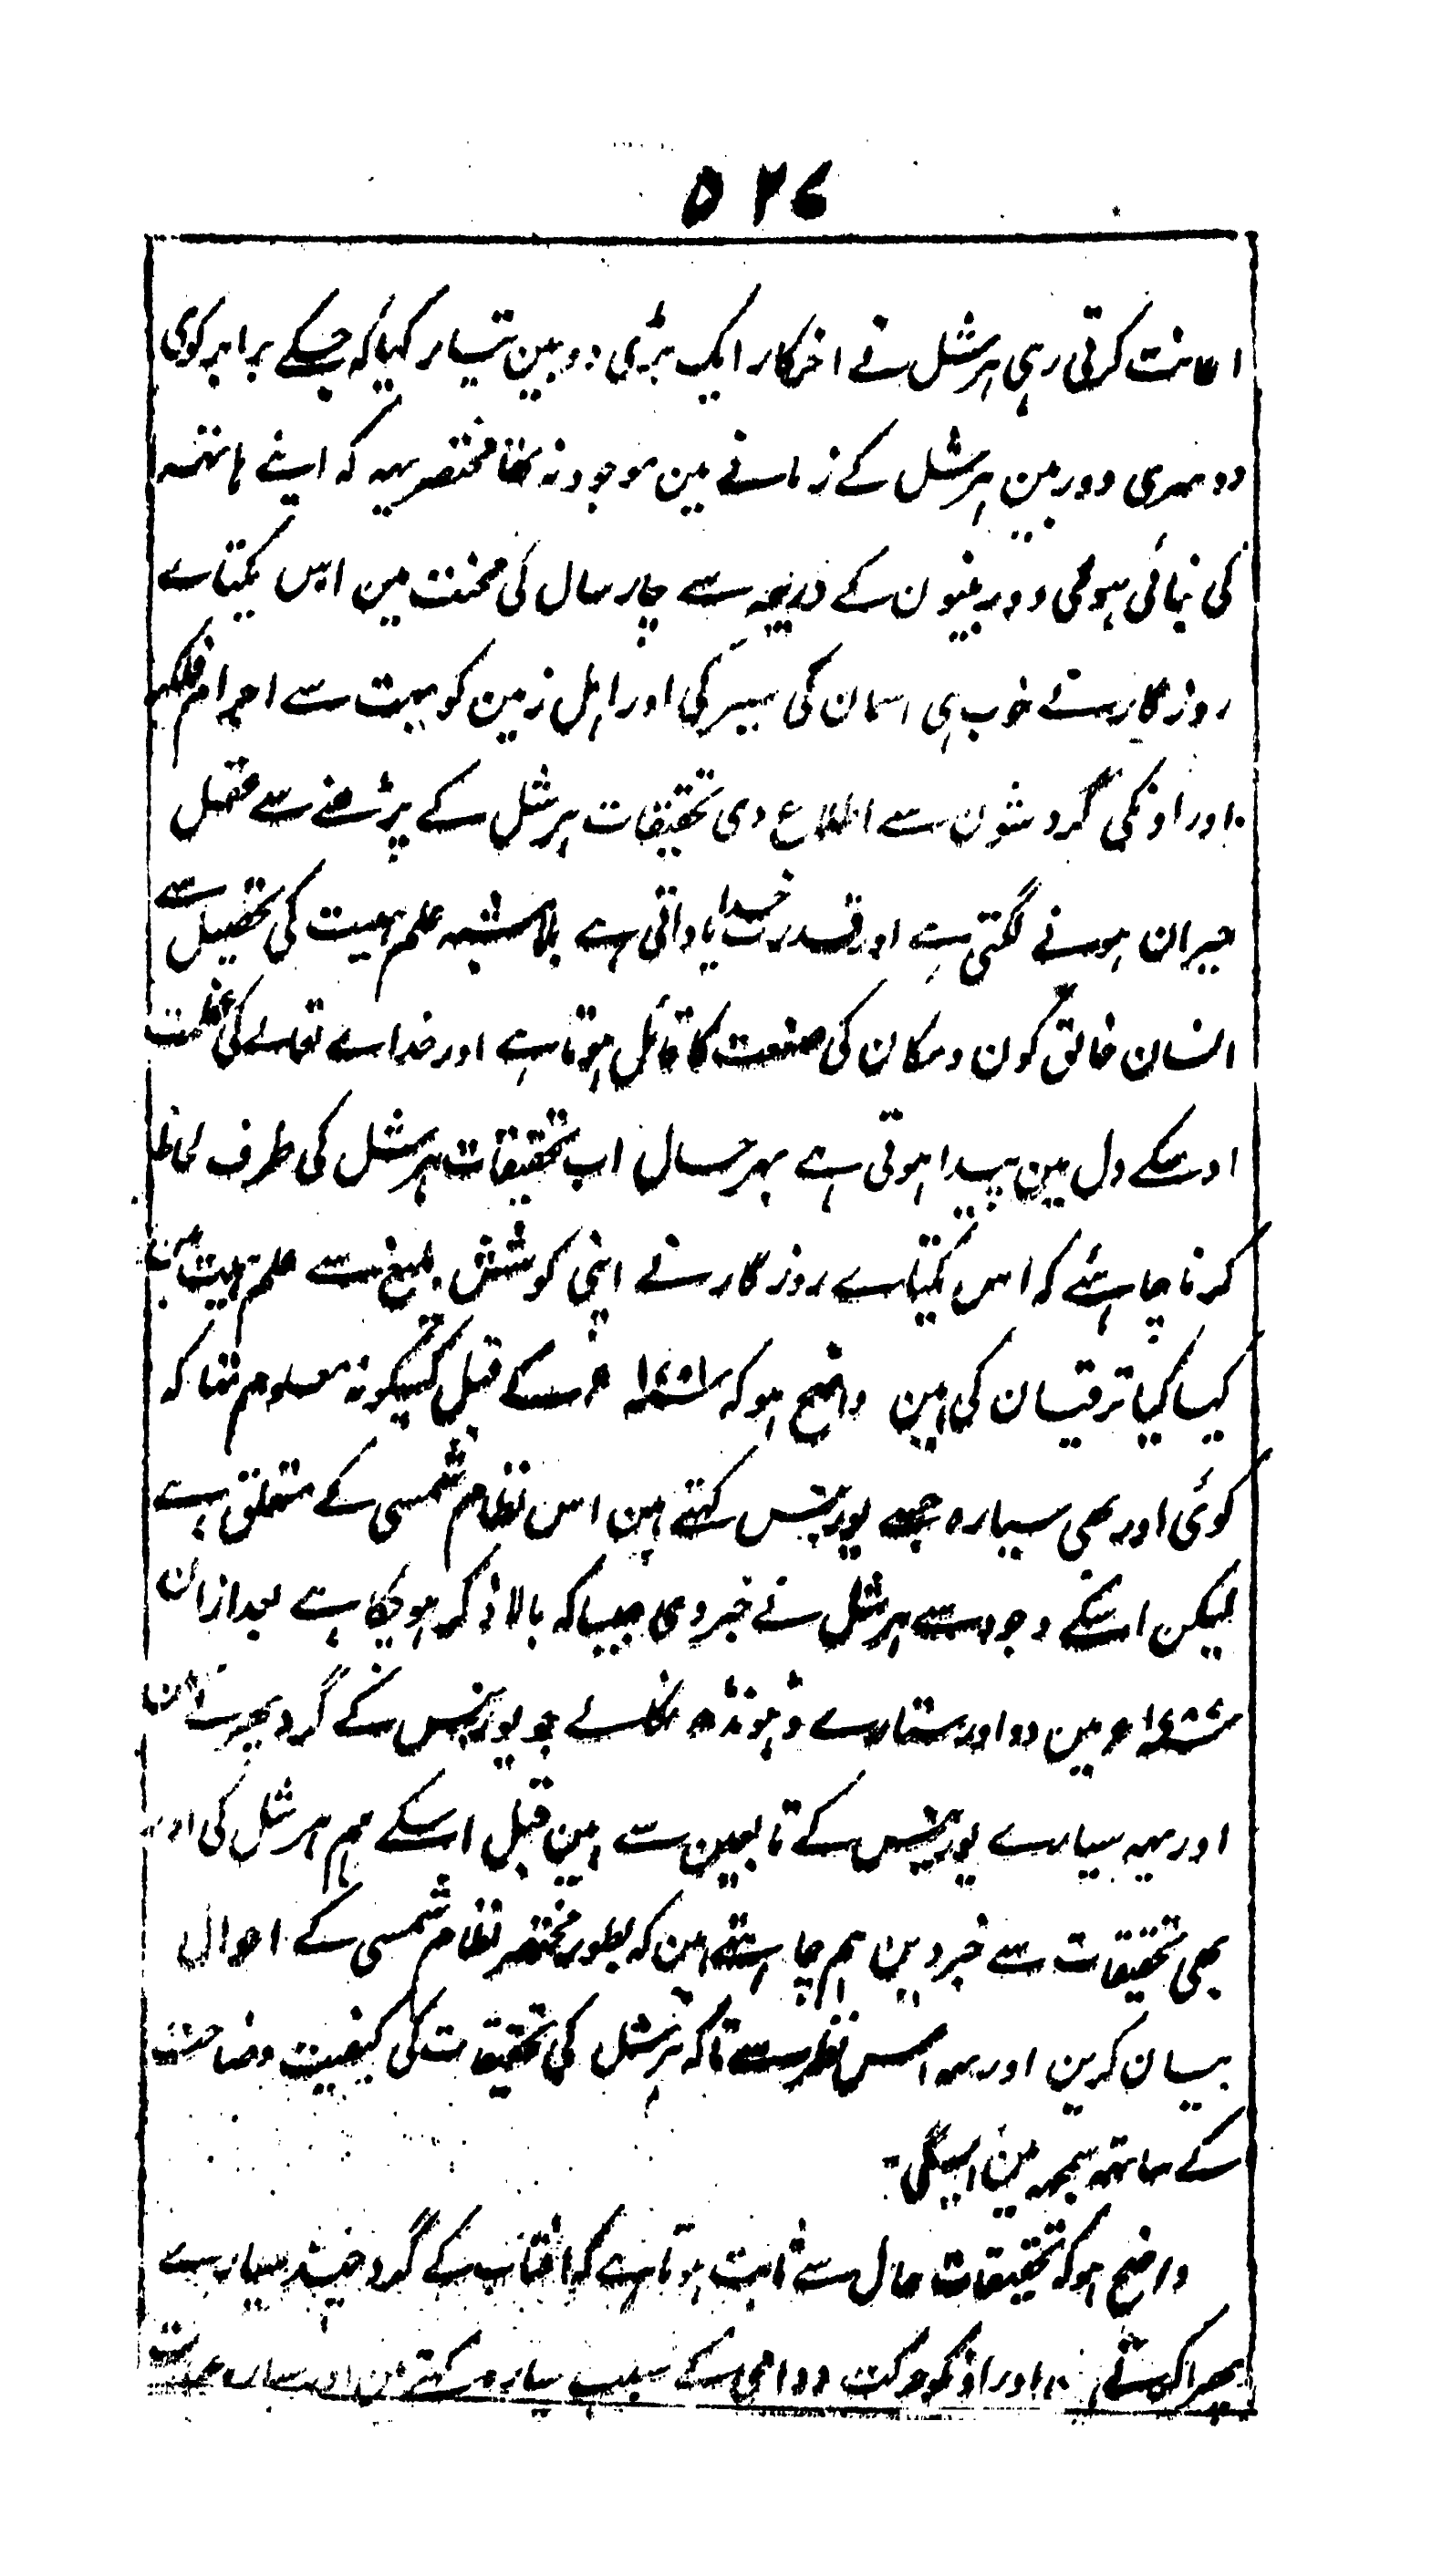 ۵۲۷
اعانت کرتی رہی ہرشل نے اخرکار ایک بڑی دوربین تیار کیا کہ جسکے برابر کوی
دوسری دوربین ہرشل کے زمانے مین موجود نہ تھا مختصر یہہ کہ اپنے ہاتھہ
کی بنائی ہوئی دوربینون کے ذریعہ سے چار سال کی محنت مین اس یکتاے
روزگار نے خوب ہی اسمان کی سیر کی اور اہل زمین کو بہت سے اجرام فلکیہ
اور اونکی گردشون سے اطلاع دی تحقیقات ہرشل کے پڑھنے سے عقل
حیران ہونے لگتی ہے اور قدرت خدا یاد اتی ہے بلاشبہہ علم ہیت کی تحصیل سے
انسان خالق کون و مکان کی صنعت کا قائل ہوتا ہے اور خداے تعالے کی عظمت
اوسکے دل مین پیدا ہوتی ہے بہرحال اب تحقیقات ہرشل کی طرف لحاظ
کرنا چاہئے کہ اس یکتاے روزگار نے اپنی کوشش بلیغ سے علم ہیت مین
کیا کیا ترقیان کی ہین واضح ہو کہ ۱۷۸۱ء کے قبل کسیکو نہ معلوم تھا کہ
کوئی اور بھی سیارہ جسے یورینس کہتے ہین اس نظام شمسی کے متعلق ہے
لیکن اسکے وجود سے ہرشل نے خبر دی جیسا کہ بالا ذکر ہو چکا ہے بعد ازان
۱۷۸۷ء مین دو اور ستارے ڈہونڈھ نکالے جو یورینس کے گرد پھرتے ہین
اور یہہ سیارے یورینس کے تابعین سے ہین قبل اسکے ہم ہرشل کی اور
بھی تحقیقات سے خبر دین ہم چاہتے ہین کہ بطور مختصر نظام شمسی کے احوال
بیان کرین اور یہہ اس نظر سے تاکہ ہرشل کی تحقیقات کی کیفیت وضاحت
کے ساتھہ سمجھہ مین ایگی۔
واضح ہو کہ تحقیقات حال سے ثابت ہوتا ہے کہ افتاب کے گرد چند سیارے
پھرا کرتے ہین اور اونکو حرکت دوامی کے سبب سیارہ کہتے ہین اور سیارہ